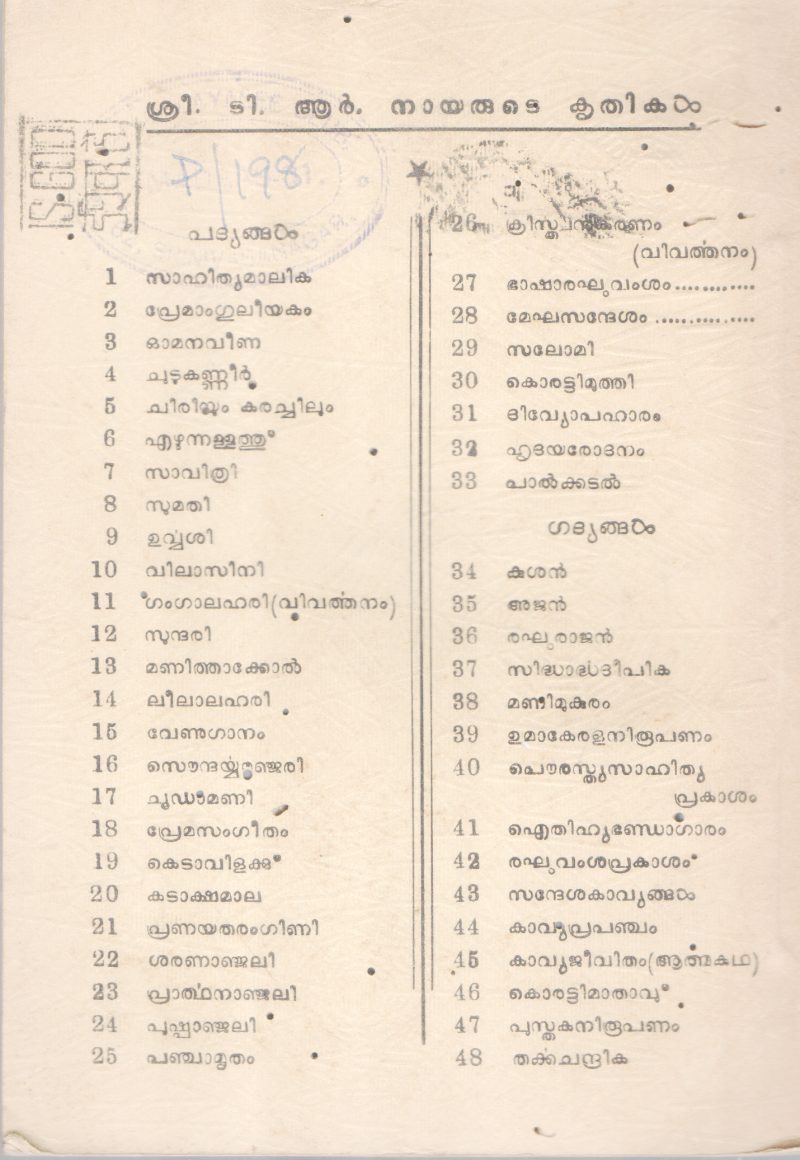 ശ്രീ. ടി. ആർ. നായരുടെ കൃതികൾ
P/198
പദ്യങ്ങൾ
1 സാഹിത്യമാലിക
2 പ്രേമാംഗുലീയകം
3 ഓമനവീണ
4 ചുടുകണ്ണീർ
5 ചിരിയും കരച്ചിലും
6 എഴുന്നള്ളത്തു്
7 സാവിത്രി
8 സുമതി
9 ഉൎവ്വശി
10 വിലാസിനി
11 ഗംഗാലഹരി(വിവൎത്തനം)
12 സുന്ദരി
13 മണിത്താക്കോൽ
14 ലീലാലഹരി
15 വേണുഗാനം
16 സൌന്ദൎയ്യമഞ്ജരി
17 ചൂഡാമണി
18 പ്രേമസംഗീതം
19 കെടാവിളക്കു്
20 കടാക്ഷമാല
21 പ്രണയതരംഗിണി
22 ശരണാഞ്ജലി
23 പ്രാൎത്ഥനാഞ്ജലി
24 പുഷ്പാഞ്ജലി
25 പഞ്ചാമൃതം
26 ക്രിസ്ത്വനുകരണം
(വിവൎത്തനം)
27 ഭാഷാരഘുവംശം............
28 മേഘസന്ദേശം ..............
29 സലോമി
30 കൊരട്ടിമുത്തി
31 ദിവ്യോപഹാരം
32 ഹൃദയരോദനം
33 പാൽക്കടൽ
ഗദ്യങ്ങൾ
34 കുശൻ
35 അജൻ
36 രഘുരാജൻ
37
38 മണിമുകുരം
39 ഉമാകേരളനിരൂപണം
40 പൌരസ്ത്യസാഹിത്യ
പ്രകാശം
41 ഐതിഹ്യഭണ്ഡാഗാരം
42 രഘുവംശപ്രകാശം
43 സന്ദേശകാവ്യങ്ങൾ
44 കാവ്യപ്രപഞ്ചം
45 കാവ്യജീവിതം(ആത്മകഥ)
46 കൊരട്ടിമാതാവു്
47 പുസ്തകനിരൂപണം
48 തൎക്കചന്ദ്രിക